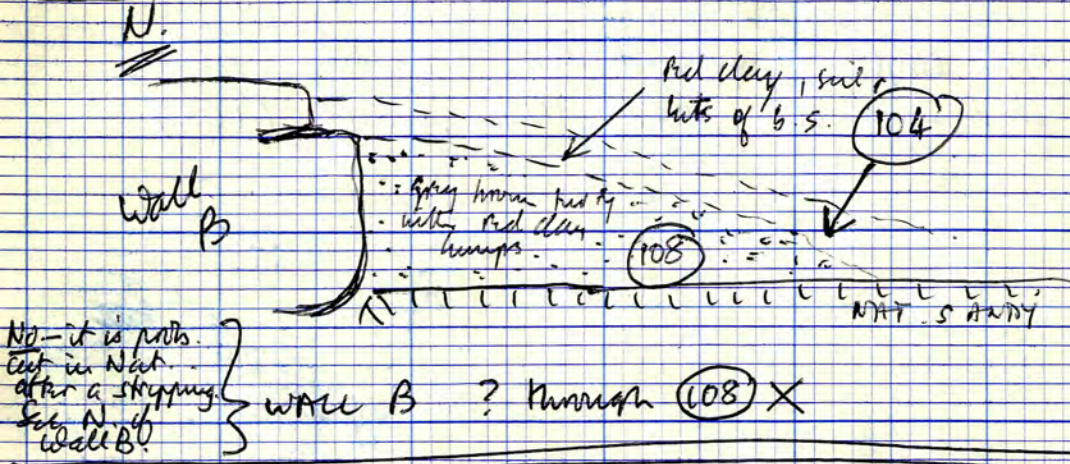 N.
Red clay, soil,
bits of b.s.
104
Wall
B
Grey brown
with red clay
lumps.
108
NAT. SANDY
No – it is prob.
cut in Nat.
after a stripping.
See N. of
Wall B.
WALL B ? through 108 X